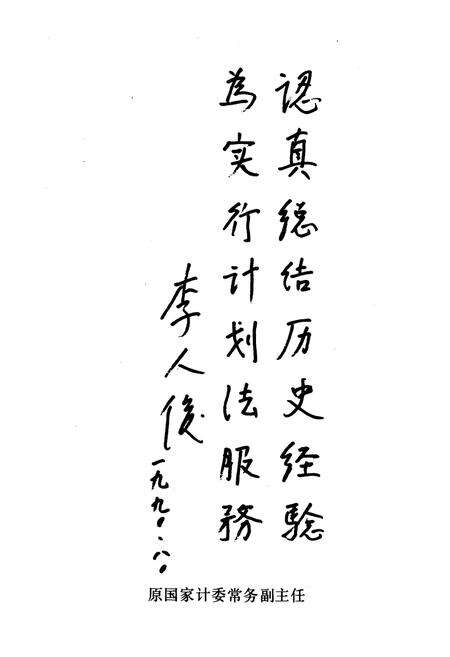 認真總结历史经驗
為实行计划法服務
李人俊
一九九〇.八〇
原国家计委常务副主任